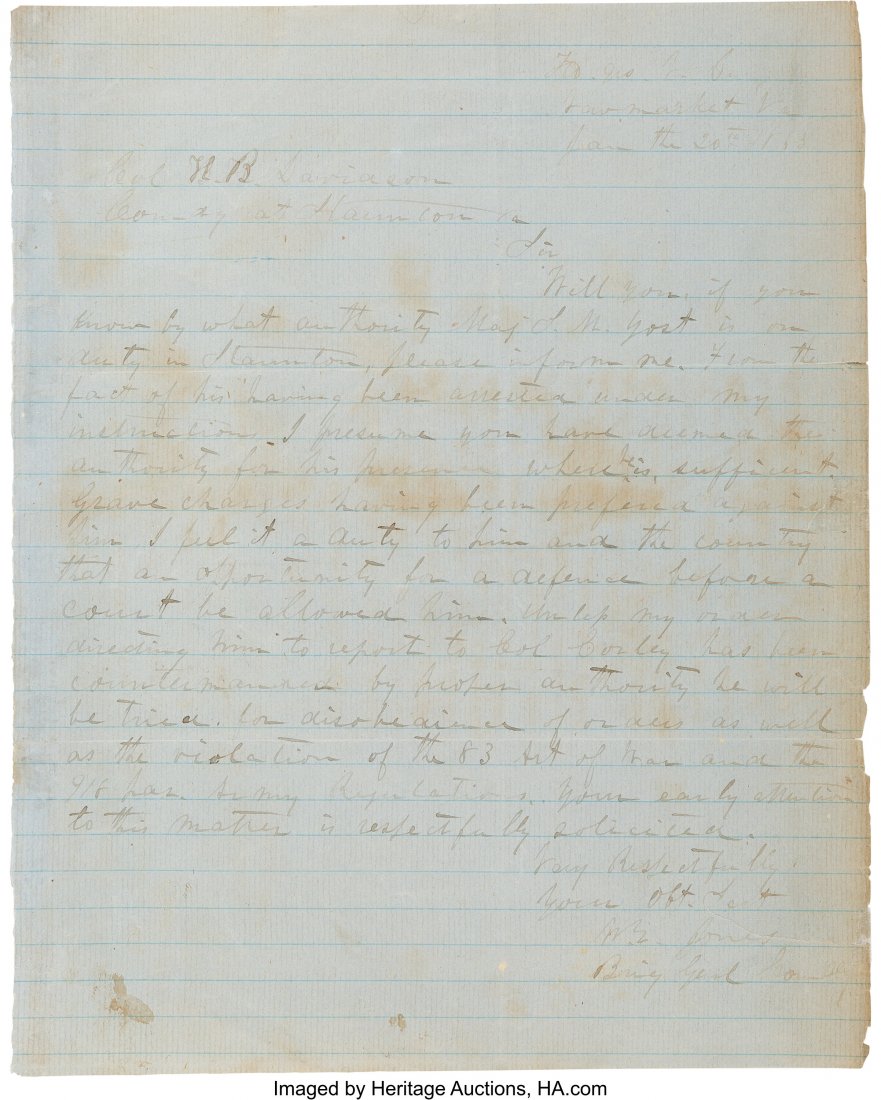 Hd. qrs V. D.
New market Va
Jan the 20th 186
Col H. B. Davidson
Com-dg at Staunton Va
Sir
Will you, if you
know by what authority Maj S. M. Yost is on
duty in Staunton, please inform me. From the
fact of his having been arrested under my
instructions I presume you have deemed the
authority for his presence where he is, sufficient.
Grave charges having been prefered against
him I feel it a duty to him and the country
that an opportunity for a defence before a
court be allowed him. Unless my order
directing him to report to Col Corley has been
countermanded by proper authority he will
be tried. for disobedience of orders as well
as the violation of the 83 Art of War and the
918 par. Army Regulations. Your early attention
to this matter is respectfully solicited.
Very Respectfully.
Your Obt. Svt
W E. Jones
Brig Genl Comdg
Imaged by Heritage Auctions, HA.com